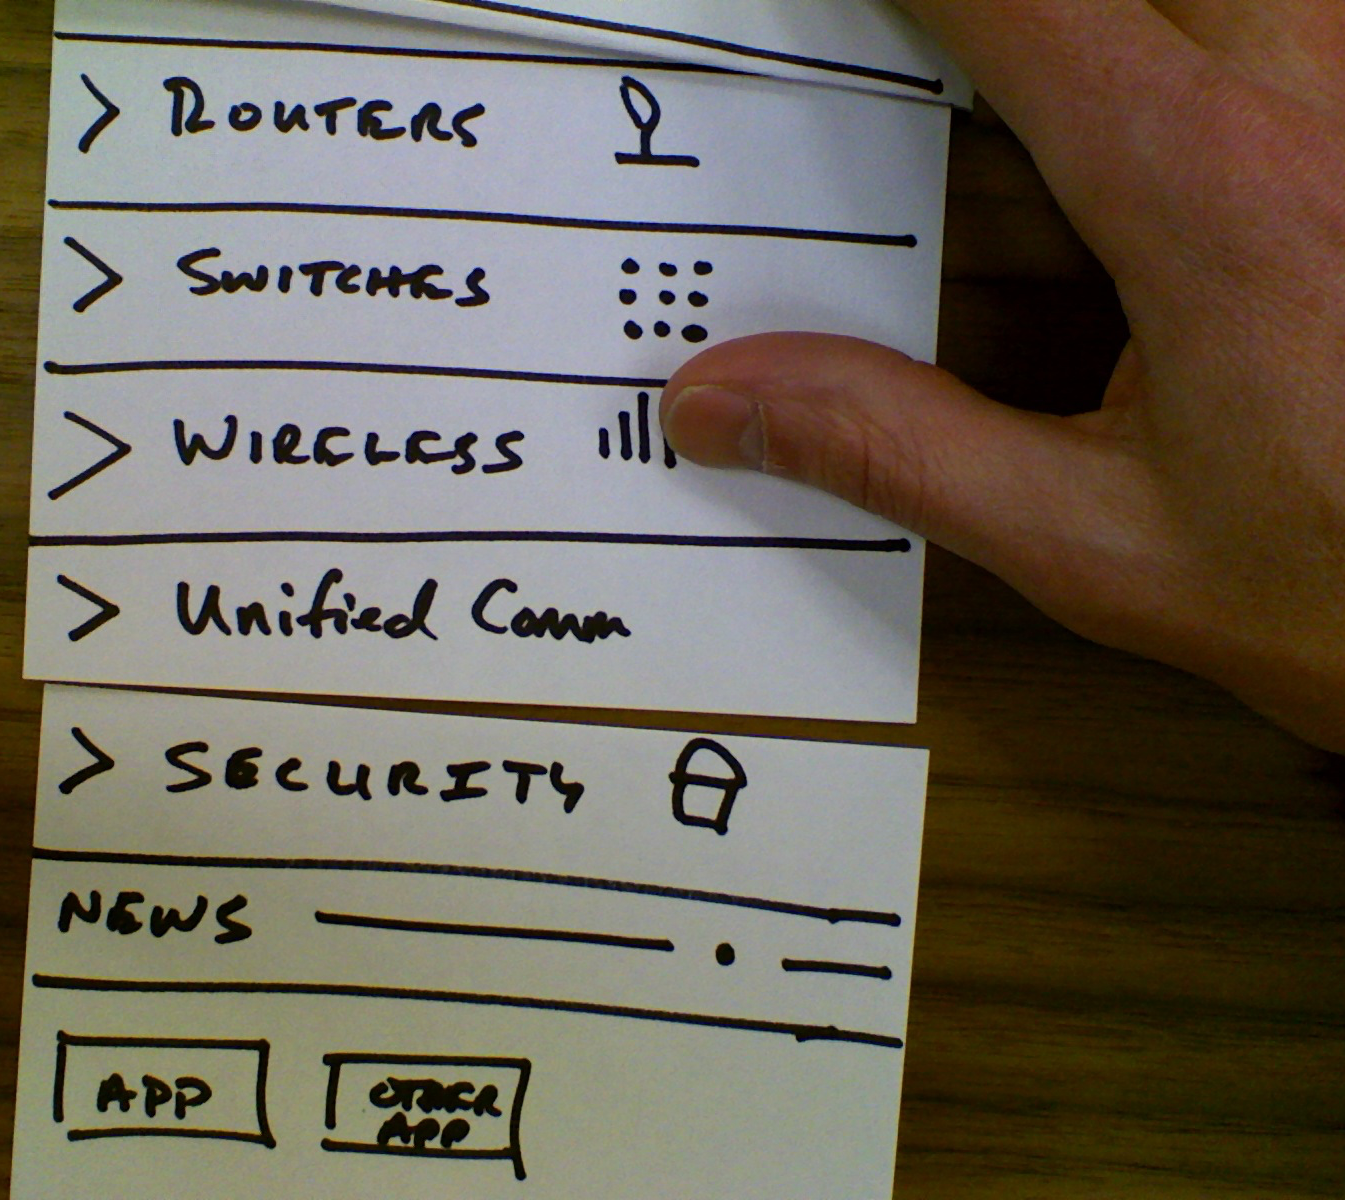 > ROUTERS
> SWITCHES
> WIRELESS
> Unified Comm
> SECURITY
NEWS
APP
OTHER
APP